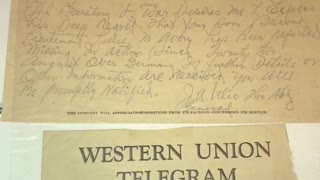 The Secretary of War Desires Me To Express
His Deep Regret That Your Son, Second
Lieutenant M Avery Has Been reported
Missing In Action Since Twenty Four
August Over Germany If Further Details or
Other Information are Received You Will
Be promptly Notified.
J.A. Ulio The Adj
General
THE COMPANY WILL APPRECIATE SUGGESTIONS FROM ITS PATRONS CONCERNING ITS SERVICE
WESTERN UNION
TELEGRAM